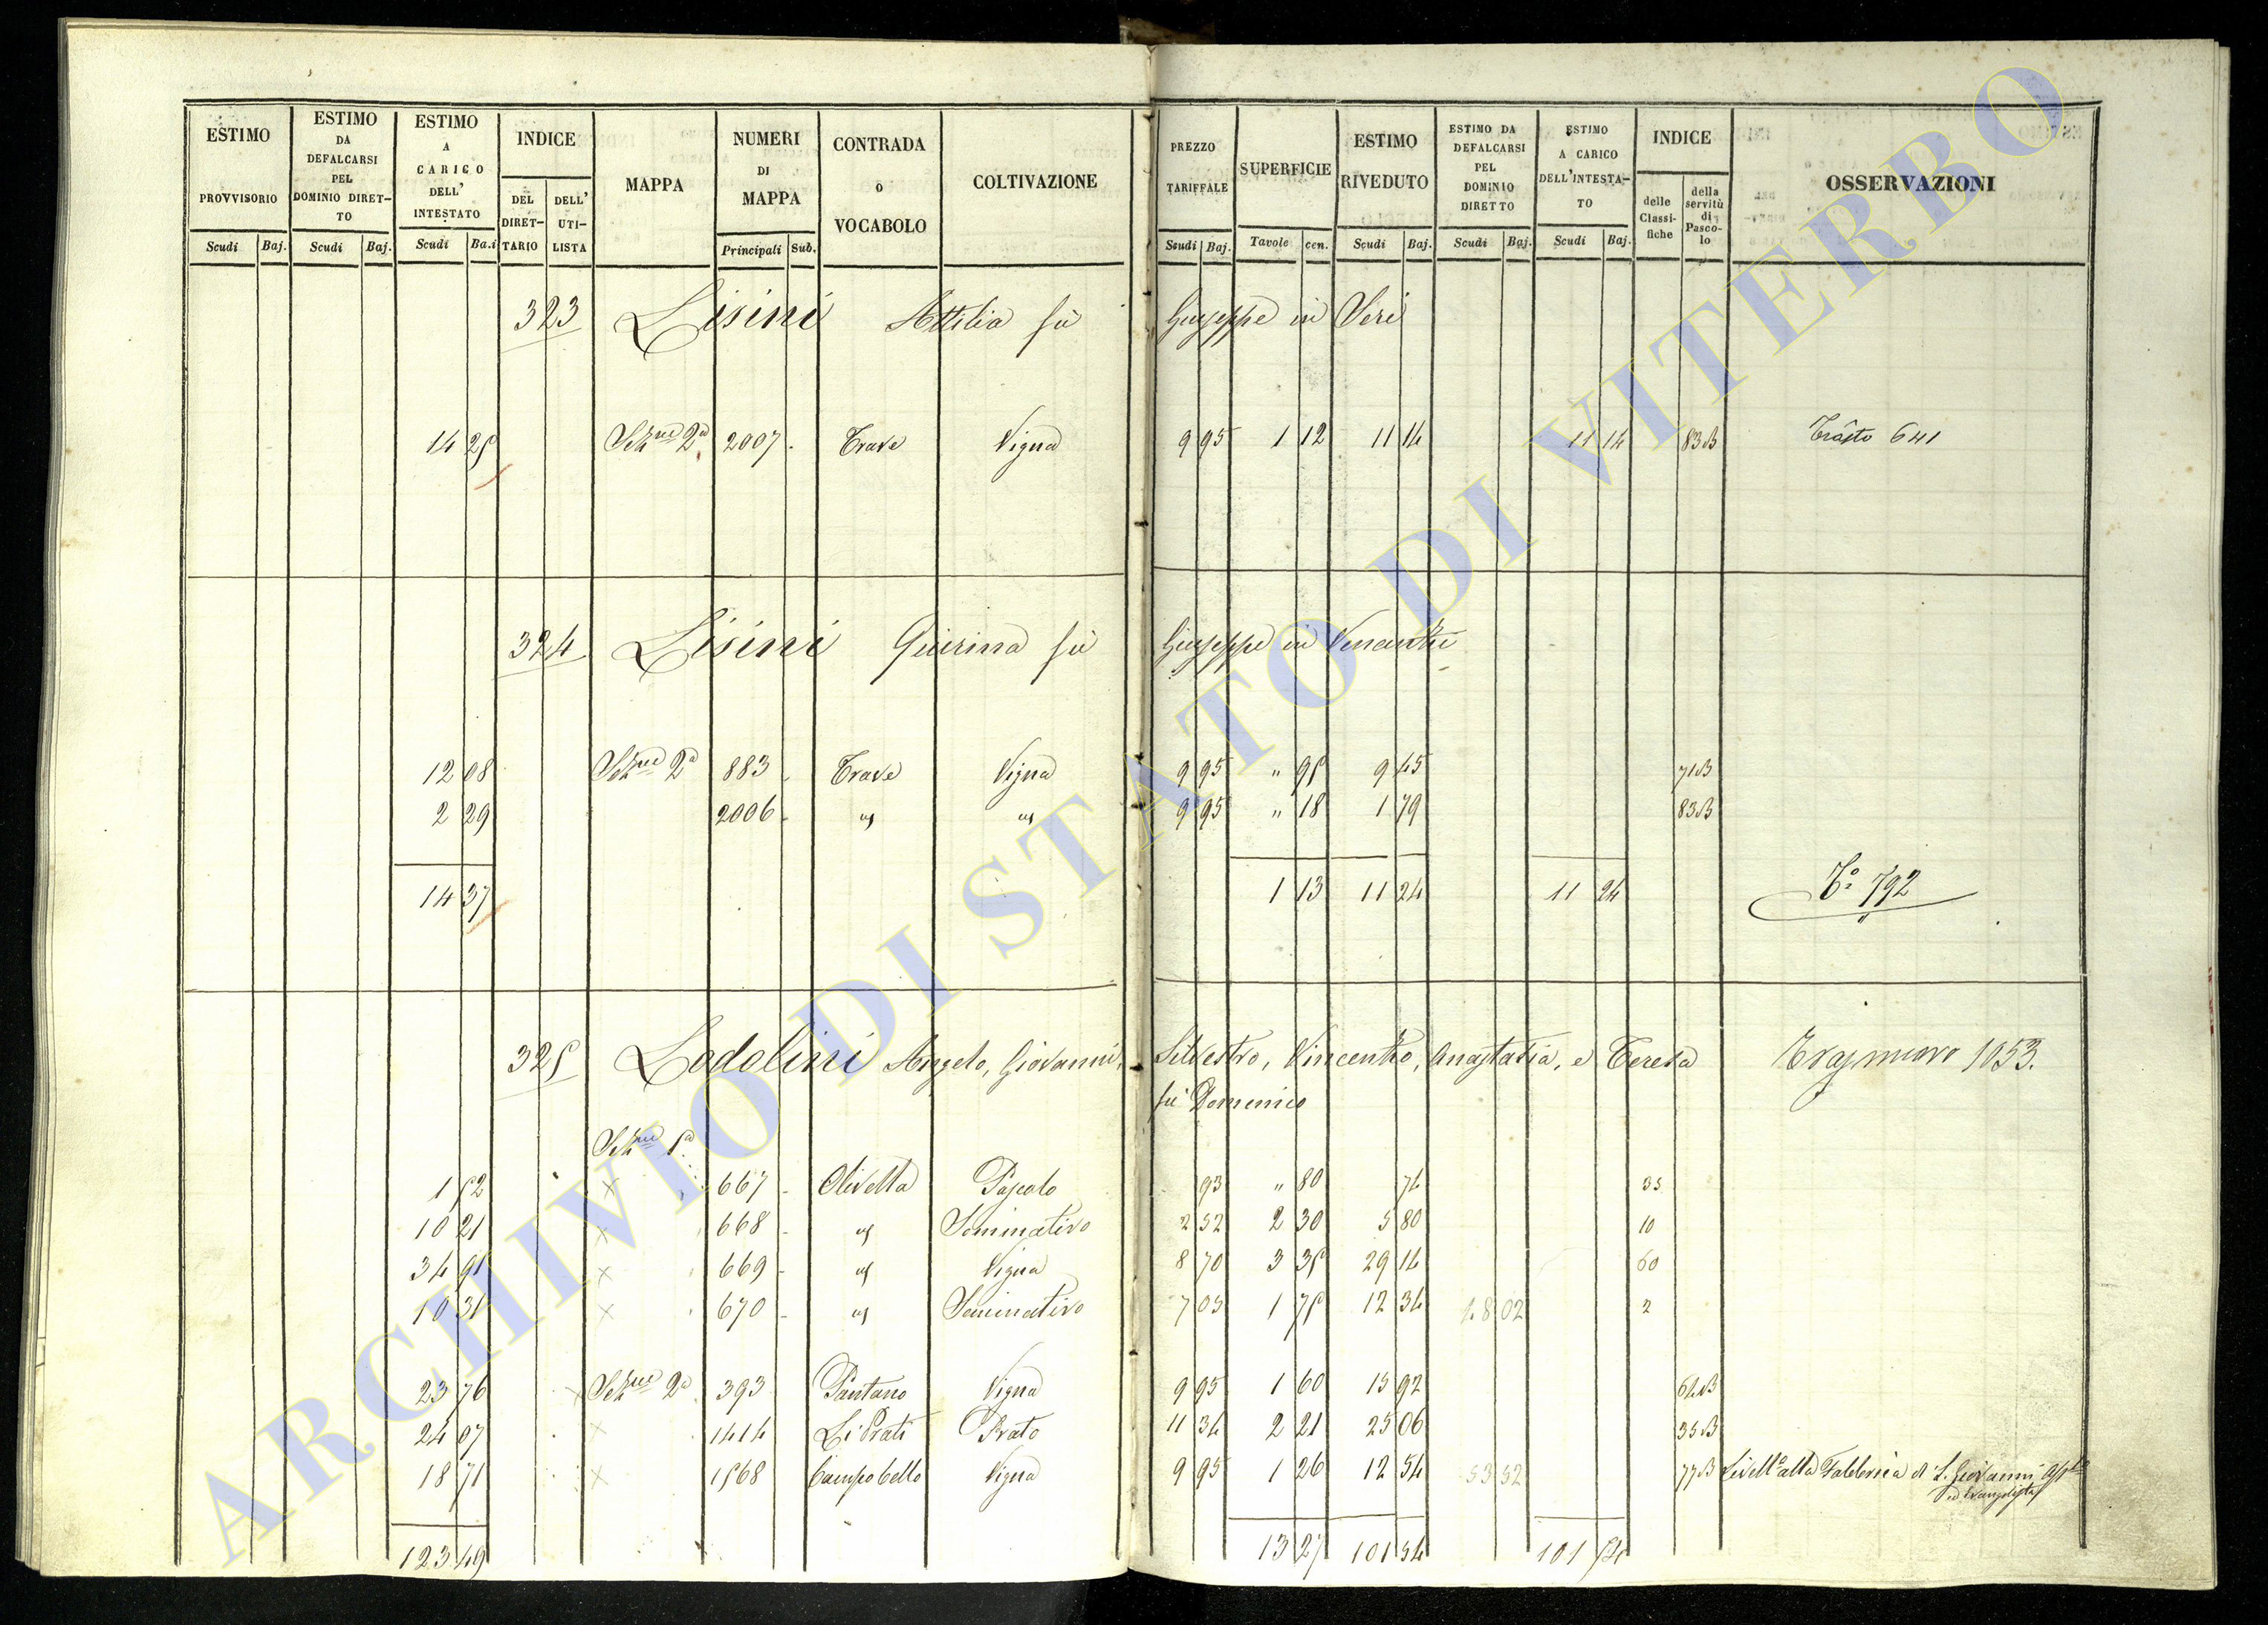 ESTIMO PROVVISORIO | ESTIMO DA DEFALCARSI PEL DOMINIO DIRETTO | ESTIMO A CARICO DELL' INTESTATO | INDICE | MAPPA | NUMERI DI MAPPA | CONTRADA o VOCABOLO | COLTIVAZIONE | PREZZO TARIFFALE | SUPERFICIE | ESTIMO RIVEDUTO | ESTIMO DA DEFALCARSI PEL DOMINIO DIRETTO | ESTIMO A CARICO DELL'INTESTATO | INDICE | OSSERVAZIONI
Scudi | Baj. | Scudi | Baj. | Scudi | Baj. | DEL DIRETTARIO | DELL' UTILISTA | Principali | Sub. | Scudi | Baj. | Tavole | cen. | Scudi | Baj. | Scudi | Baj. | Scudi | Baj. | delle Classifiche | della servitù di Pascolo
323 Lisini Attilia fù Giuseppe in Veri
14 25 2ª 2007 Trave Vigna 9 95 1 12 11 14 11 14 83B 641
324 Lisini fù Giuseppe in
12 08 2ª 883 Trave Vigna 9 95 " 95 9 45 71B
2 29 2006 9 95 " 18 1 79 83B
14 37 1 13 11 24 11 24 792
325 Lodolini Angelo, Giovanni, Silvestro, Vincenzo, Anastasia, e Teresa 1053.
fù Domenico
1 52 667 Olivella Pascolo 93 " 80 74 35
10 21 668 Seminativo 2 52 2 30 5 80 10
34 91 669 Vigna 8 70 3 35 29 14 60
10 31 670 Seminativo 7 05 1 75 12 34 48 02 2
23 76 2ª 393 Pantano Vigna 9 95 1 60 15 92
24 07 1414 Li Prati Prato 11 34 2 21 25 06 35B
18 71 1568 Campo bello Vigna 9 95 1 26 12 54 53 52 77B alla Fabbrica di S. Giovanni
ed Evangelista
123 49 13 27 101 54 101 54
ARCHIVIO DI STATO DI VITERBO